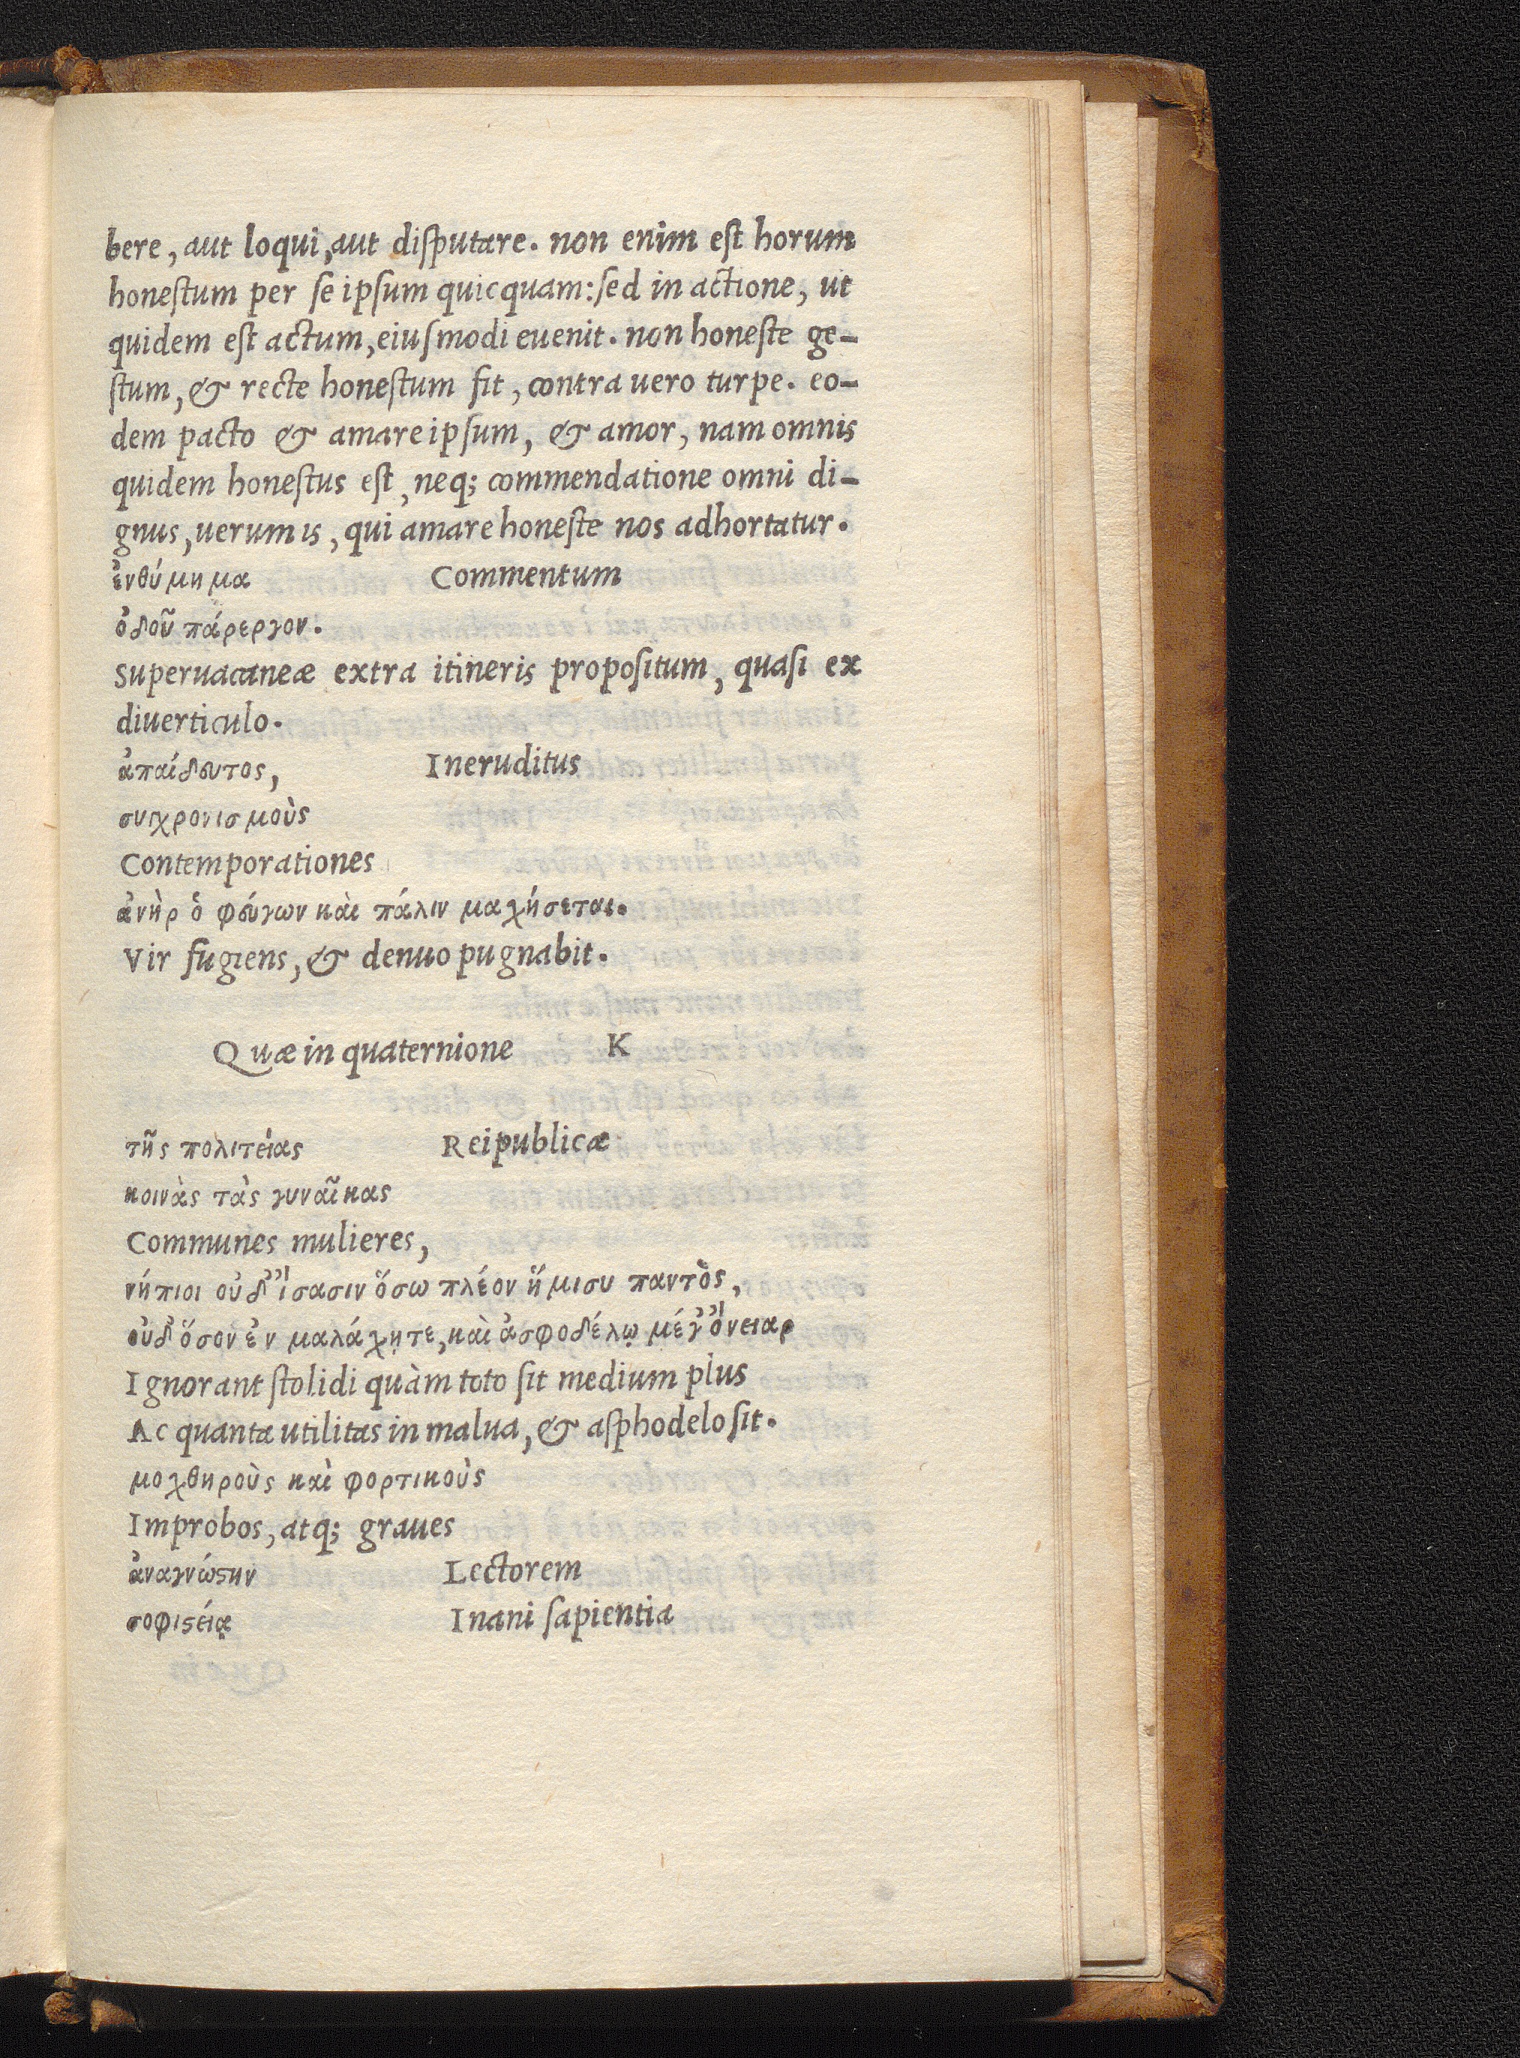 bere, aut loqui, aut disputare. non enim est horum
honestum per se ipsum quicquam: sed in actione, ut
quidem est actum, eiusmodi euenit. non honeste ge-
stum, & recte honestum fit, contra uero turpe. eo-
dem pacto & amare ipsum, & amor, nam omnis
quidem honestus est, neq; commendatione omni di-
gnus, uerum is, qui amare honeste nos adhortatur.
ἐνθύμημα Commentum
ὁδοῦ πάρεργον.
Superuacaneæ extra itineris propositum, quasi ex
diuerticulo.
ἀπαίδευτος, Ineruditus
συγχρονισμοὺς
Contemporationes
ἀνὴρ ὁ φεύγων καὶ πάλιν μαχήσεται.
Vir fugiens, & denuo pugnabit.
Quæ in quaternione K
τῆς πολιτείας Reipublicæ
κοινὰς τὰς γυναῖκας
Communes mulieres,
νήπιοι οὐδ᾽ ἴσασιν ὅσω πλέον ἥμισυ παντὸς,
οὐδ᾽ ὅσον ἐν μαλάχῃ τε, καὶ ἀσφοδέλῳ μέγ᾽ ὄνειαρ
Ignorant stolidi quàm toto sit medium plus
Ac quanta utilitas in malua, & asphodelo sit.
μοχθηροὺς καὶ φορτικοὺς
Improbos, atq; graues
ἀναγνώςην Lectorem
σοφιςείᾳ Inani sapientia